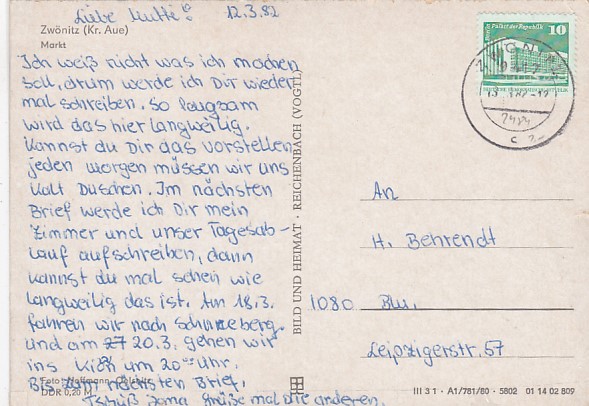 Liebe Mutti! 12.3.82
Zwönitz (Kr. Aue)
Markt
Ich weiß nicht was ich machen
soll, drum werde ich Dir wieder
mal schreiben. So langsam
wird das hier langweilig.
Kannst du Dir das vorstellen
jeden morgen müssen wir uns
Kalt Duschen. Im nächsten
Brief werde ich Dir mein
Zimmer und unser Tagesab-
lauf aufschreiben, dann
kannst du mal sehen wie
langweilig das ist. Am 18.3.
fahren wir nach Schneeberg
und am 20.3. gehen wir
ins Kino um 20 Uhr.
Bis zum nächsten Brief,
Foto: Hoffmann, Oelsnitz
DDR 0,20 M
Tschüß Jana Grüße mal die anderen.
BILD UND HEIMAT · REICHENBACH (VOGTL)
Berlin, Palast der Republik 10
ZWÖNITZ
9417
9484
c
An
H. Behrendt
1080 Bln.
Leipzigerstr. 57
III 3 1 · A1/781/80 · 5802 01 14 02 809